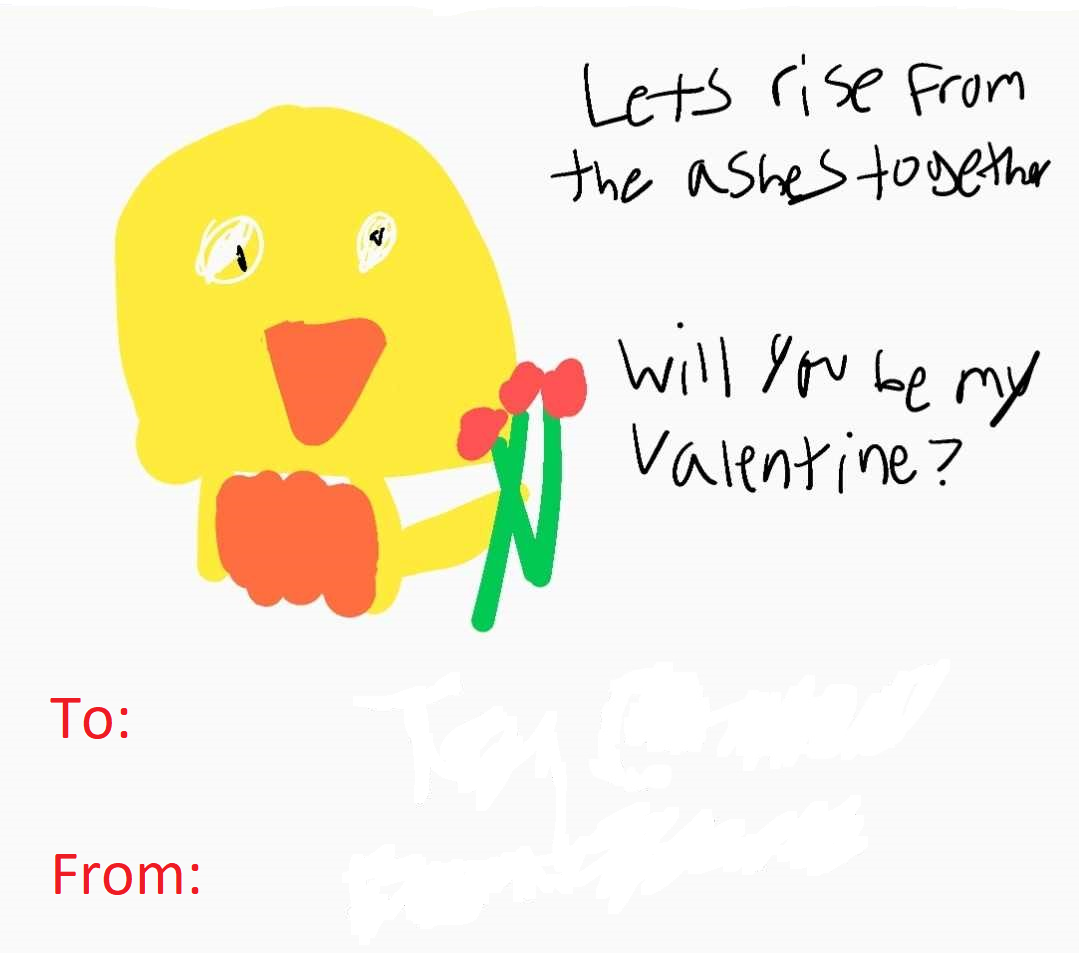 Lets rise From
the ashes together
Will you be my
Valentine?
To:
From: